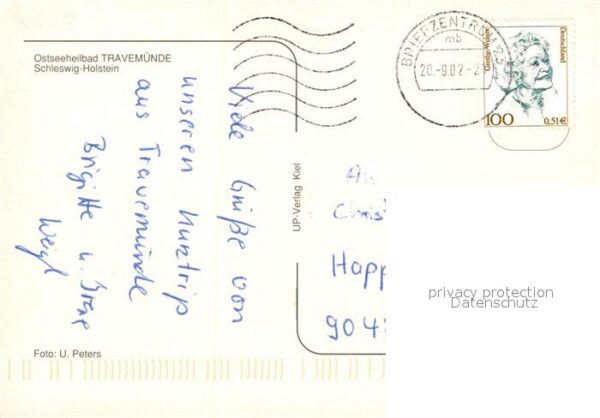 Ostseeheilbad TRAVEMÜNDE
Schleswig-Holstein
Viele Grüße von
unseren Kurztrip
aus Travemünde
Brigitte u.
Weigl
Foto: U. Peters
UP-Verlag Kiel
BRIEFZENTRUM 23
mb
20.-9.02-2
Deutschland
100
0,51€
An
Chris
Happ
904
privacy protection
Datenschutz